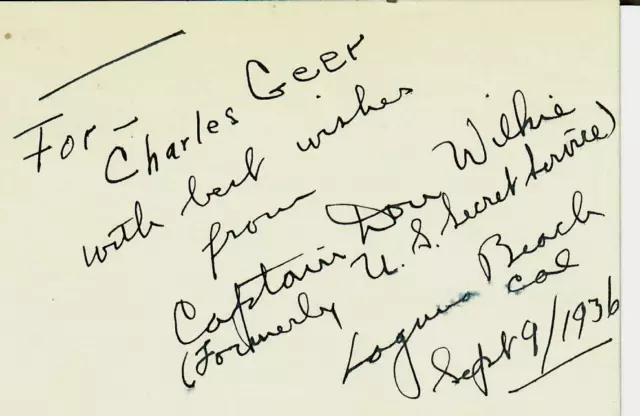 For -
Charles Geer
with best wishes
from
Captain Don Wilkie
(Formerly U. S. Secret Service)
Laguna Beach
Cal
Sept 9/1936